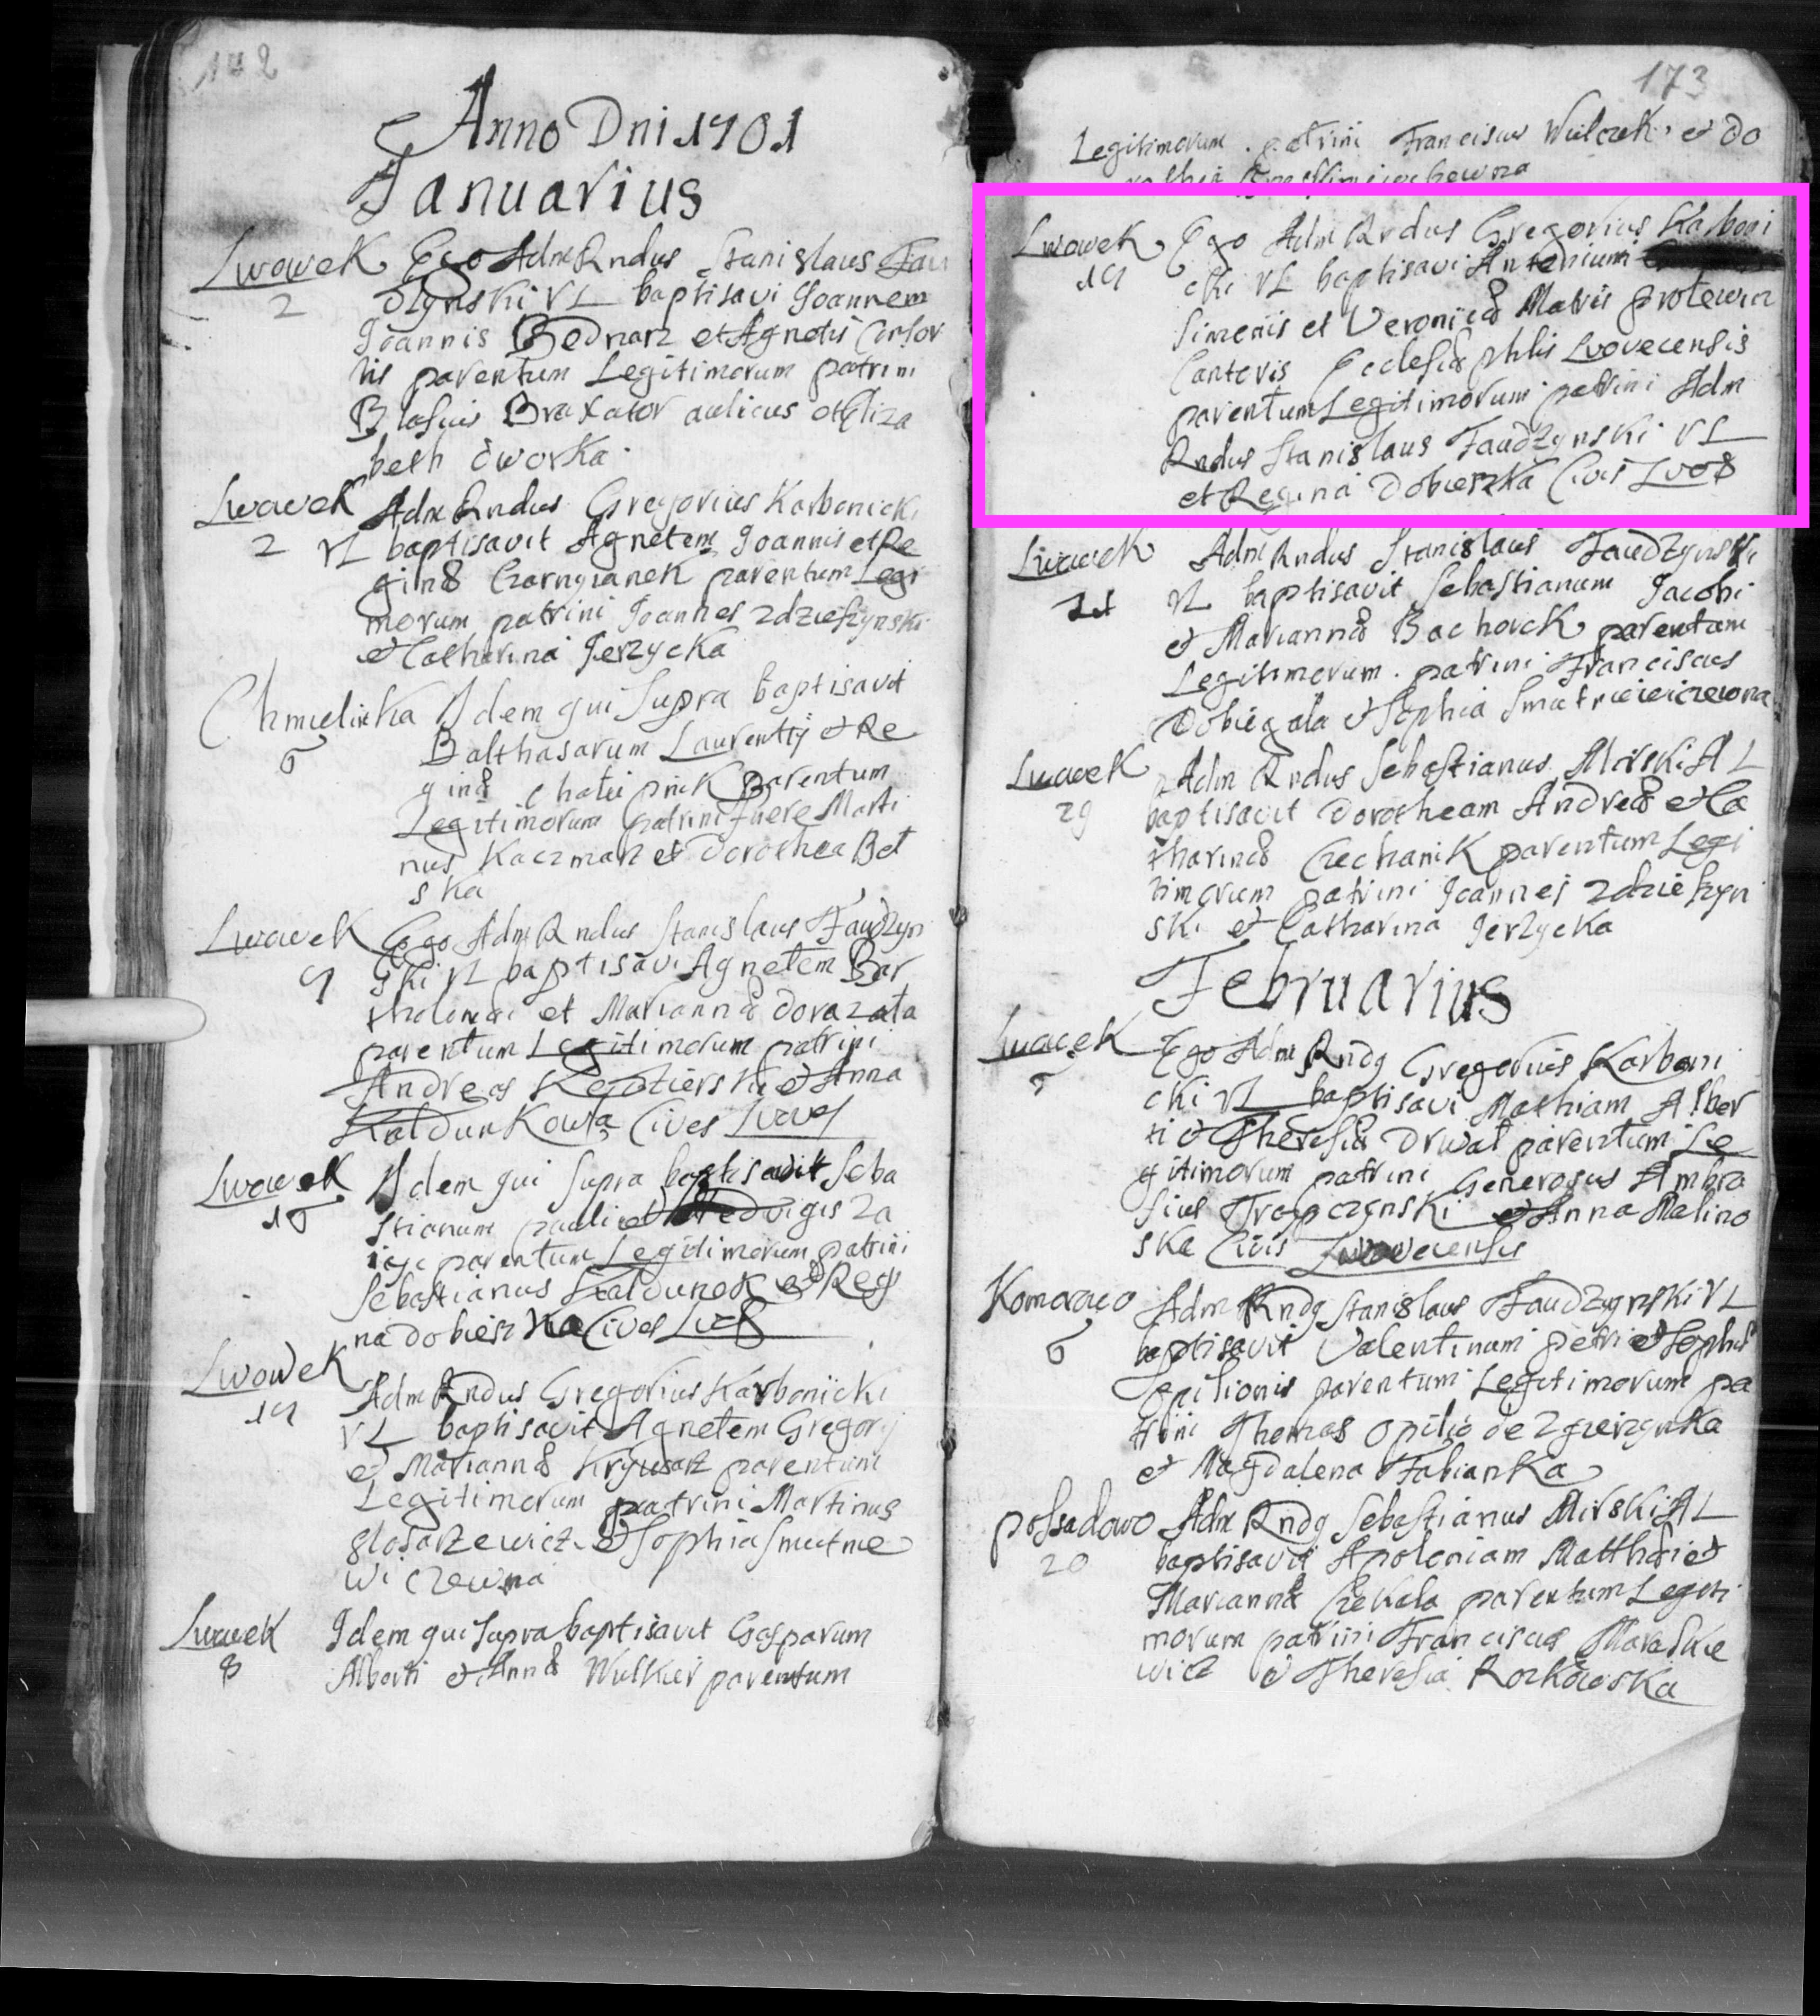 172
Anno Dni 1701
Januarius
Lwowek Ego Adm Rndus Stanislaus Fau
2 dzynski VL baptisavi Joannem
Joannis Bednarz et Agnetis Consor
tis parentum Legitimorum patrini
Blasius Braxator aulicus et Eliza
beth dworka
Lwowek Adm Rndus Gregorius Karbonicki
2 VL baptisavit Agnetem Joannis et Re
ginæ Czarnyianek parentum Legi
morum patrini Joannes Zdzieszynski
et Catharina Jerzycka
Chmielinka Idem qui Supra baptisavit
6 Balthasarum Laurentij et Re
ginæ parentum
Legitimorum patrini fuere Marti
nus Kaczmarz et Dorothea Bet
ska
Lwowek Ego Adm Rndus Stanislaus Faudzyn
9 ski VL baptisavi Agnetem Bar
tholomei et Mariannæ Dorazata
parentum Legitimorum patrini
Andreas et Anna
Kaldunkowa Cives Lwow
Lwowek Idem qui Supra baptisavit Seba
16 stianum pauli et Hedvigis Za
iąc parentum Legitimorum patrini
Sebastianus Kaldunek et Regi
na dobiesz Cives
Lwowek Adm Rndus Gregorius Karbonicki
19 VL baptisavit Agnetem Gregorij
et Mariannæ Krywarz parentum
Legitimorum patrini Martinus
glosarzewicz et Sophia Smutnie
wiczewna
Lwowek Idem qui Supra baptisavit Gasparum
8 Alberti et Annæ Wulkier parentum
173
Legitimorum patrini Franciscus Wulczek et Do
rothea
Lwowek Ego Adm Rndus Gregorius Karboni
19 cki VL baptisavi Antonium
Simonis et Veronicæ Matris
Cantoris Ecclesiæ phlis Lvovecensis
parentum Legitimorum patrini Adm
Rndus Stanislaus Faudzynski VL
et Regina Dobieszka Civis
Lwowek Adm Rndus Stanislaus Faudzynski
21 VL baptisavit Sebastianum Jacobi
et Mariannæ Bachorek parentum
Legitimorum patrini Franciscus
Dobiegala et Sophia
Lwowek Adm Rndus Sebastianus Mirski AL
29 baptisavit Dorotheam Andreæ et Ca
tharinæ Czechanik parentum Legi
timorum patrini Joannes Zdzieszyn
ski et Catharina Jerzycka
Februarius
Lwowek Ego Adm Rndq Gregorius Karboni
5 cki VL baptisavi Mathiam Alber
ti et Theresiæ Drwal parentum Le
gitimorum patrini Generosus Ambro
sius Trąpczynski et Anna Malino
ska Civis Lwowecensis
Komorowo Adm Rndq Stanislaus Faudzynski VL
6 baptisavit Valentinum petri et Sophiæ
Opilionis parentum Legitimorum pa
trini Thomas Opilio de Zgierzynka
et Magdalena Fabianka
possadowo Adm Rndq Sebastianus Mirski AL
20 baptisavit Apoloniam Matthæi et
Mariannæ Czekala parentum Legiti
morum patrini Franciscus
wicz et Theresia Rozkowska